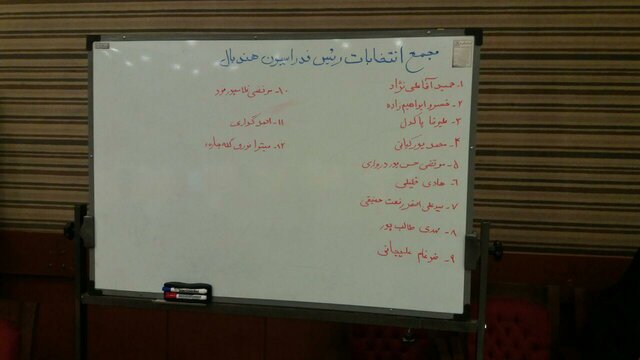 مجمع انتخابات رئیس فدراسیون هندبال
۱- حمید آقا علی نژاد
۲- خسرو ابراهیم زاده
۳- علیرضا پاکدل
۴- محمد پورکیانی
۵- مرتضی حسن پور
۶- هادی خلیلی
۷- سید علی اصغر رفعت حقیقی
۸- مهدی طالب پور
۹- ضرغام علیجانی
۱۰- مرتضی
۱۱- احمد گواری
۱۲- میترا نوروزی